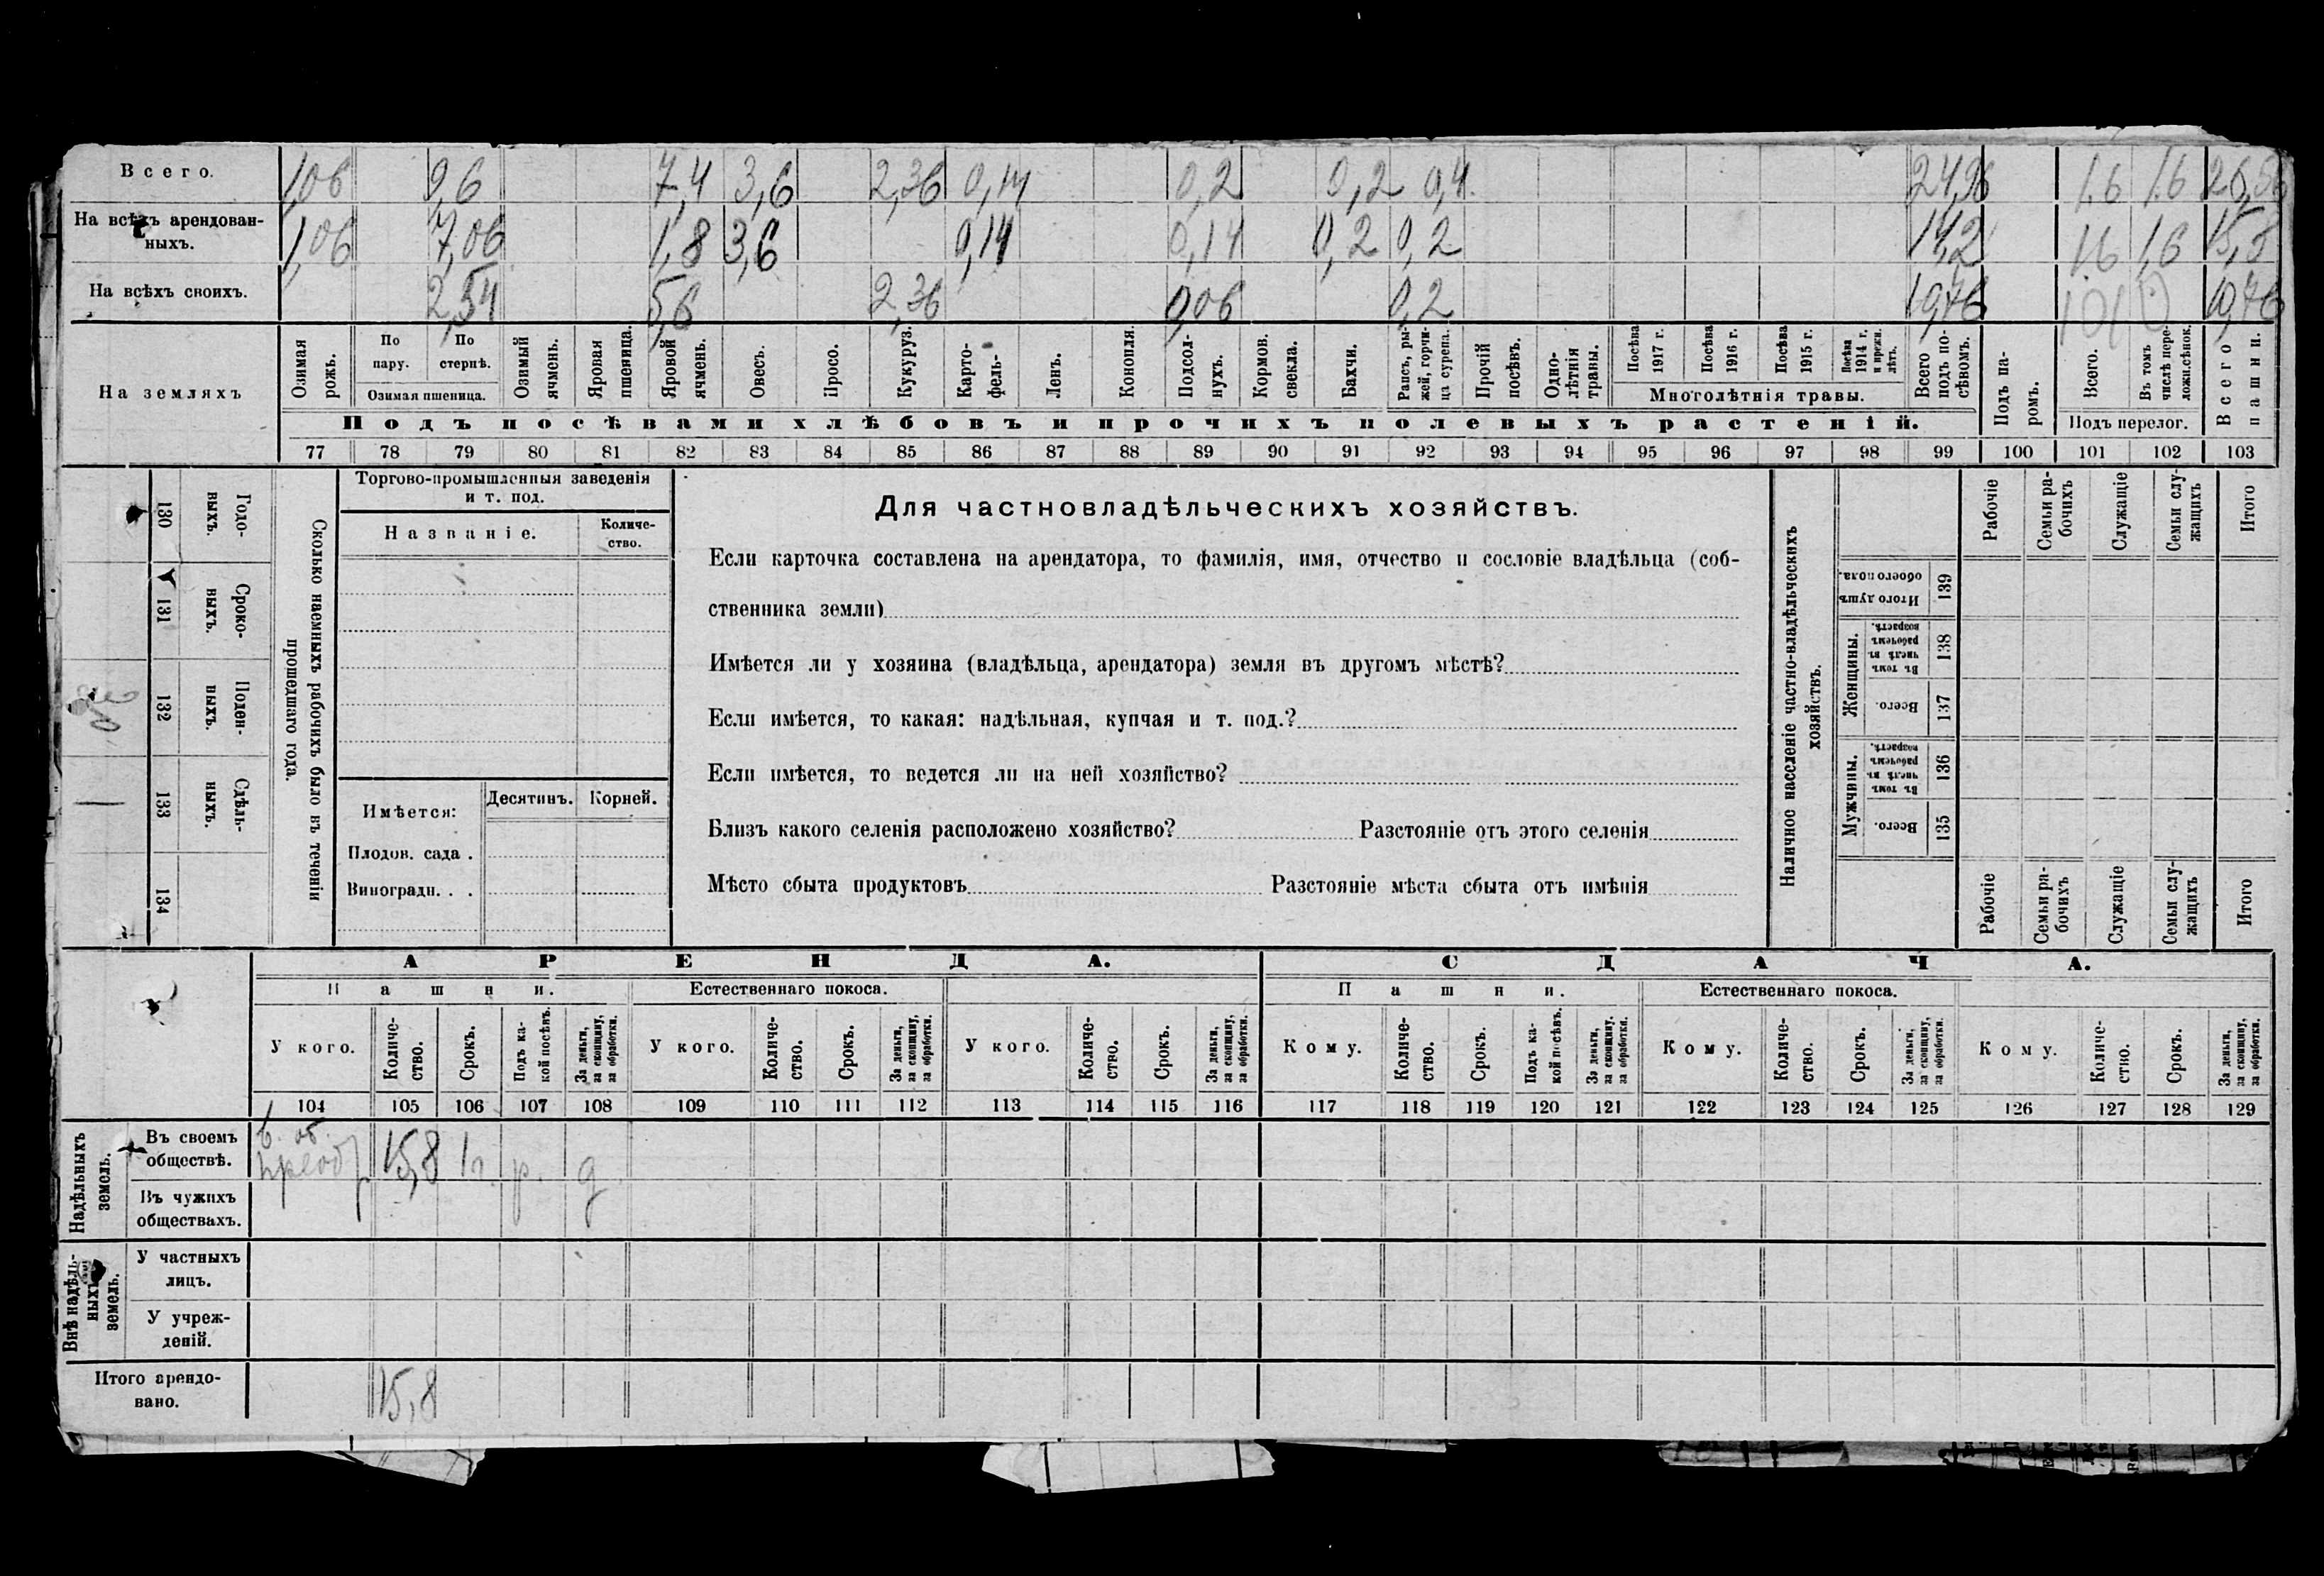 Всего. 1,06 9,6 7,4 3,6 2,36 0,14 0,2 0,2 0,4 24,96 1.6 1.6 26,56
На всѣхъ арендован-
ныхъ. 1,06 7,06 1,8 3,6 0,14 0,14 0,2 0,2 14,2 1.6 1,6 15,8
На всѣхъ своихъ. 2,54 5,6 2,36 0,06 0,2 10,76 10,76
На земляхъ
Озимая рожь.
По пару.
По стернѣ.
Озимая пшеница.
Озимый ячмень.
Яровая пшеница.
Яровой ячмень.
Овесъ.
Просо.
Кукуруз.
Карто-фель-
Ленъ.
Конопля.
Подсол-нухъ.
Кормов. свекла.
Бахчи.
Рапсъ, ры-жей, горчи-ца сурепа.
Прочій посѣвъ.
Одно-лѣтнія травы.
Посѣва 1917 г.
Посѣва 1916 г.
Посѣва 1915 г.
Посѣва 1914 г. и прежн. лѣтъ.
Многолѣтнія травы.
Всего подъ по-сѣвомъ.
Подъ па-ромъ.
Всего.
Въ томъ числѣ пере-ложн.сѣнок.
Подъ перелог.
Всего пашни.
Подъ посѣвами хлѣбовъ и прочихъ полевыхъ растеній.
77 78 79 80 81 82 83 84 85 86 87 88 89 90 91 92 93 94 95 96 97 98 99 100 101 102 103
130 Годо-выхъ.
131 Сроко-ныхъ.
132 Поден-ныхъ.
133 Сдѣль-ныхъ.
134
Сколько наемныхъ рабочихъ было въ теченіи
прошедшаго года.
Торгово-промышленныя заведенія
и т. под.
Названіе.
Количе-ство.
Имѣется: Десятинъ. Корней.
Плодов. сада .
Виноградн. . .
Для частновладѣльческихъ хозяйствъ.
Если карточка составлена на арендатора, то фамилія, имя, отчество и сословіе владѣльца (соб-
ственника земли)
Имѣется ли у хозяина (владѣльца, арендатора) земля въ другомъ мѣстѣ?
Если имѣется, то какая: надѣльная, купчая и т. под.?
Если имѣется, то ведется ли на ней хозяйство?
Близъ какого селенія расположено хозяйство? Разстояніе отъ этого селенія
Мѣсто сбыта продуктовъ Разстояніе мѣста сбыта отъ имѣнія
Наличное населеніе частно-владѣльческихъ
хозяйствъ.
Рабочіе
Семьи ра-бочихъ
Служащіе
Семьи слу-жащихъ
Итого
Итого душъ обоего пола. 139
Женщины.
Въ томъ числѣ въ рабочемъ возрастѣ. 138
Всего. 137
Мужчины.
Въ томъ числѣ въ рабочемъ возрастѣ. 136
Всего. 135
Рабочіе
Семьи ра-бочихъ
Служащіе
Семьи слу-жащихъ
Итого
АРЕНДА. СДАЧА.
Пашни. Естественнаго покоса. Пашни. Естественнаго покоса.
У кого.
Количе-ство.
Срокъ.
Подъ ка-кой посѣвъ.
За деньги, за скопщину, за обработки.
У кого.
Количе-ство.
Срокъ.
За деньги, за скопщину, за обработки.
У кого.
Количе-ство.
Срокъ.
За деньги, за скопщину, за обработки.
Кому.
Количе-ство.
Срокъ.
Подъ ка-кой посѣвъ.
За деньги, за скопщину, за обработки.
Кому.
Количе-ство.
Срокъ.
За деньги, за скопщину, за обработки.
Кому.
Количе-ство.
Срокъ.
За деньги, за скопщину, за обработки.
104 105 106 107 108 109 110 111 112 113 114 115 116 117 118 119 120 121 122 123 124 125 126 127 128 129
Надѣльныхъ земель.
Въ своемъ
обществѣ. 15,8 1 г. р. д
Въ чужихъ
обществахъ.
Внѣ надѣль-ныхъ земель.
У частныхъ
лицъ.
У учреж-
деній.
Итого арендо-
вано. 15,8